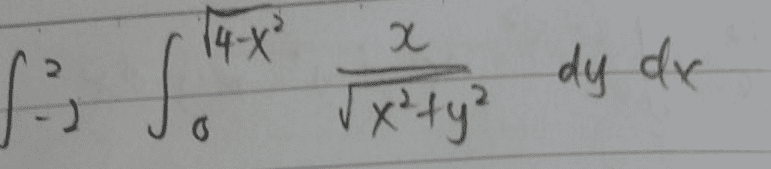 ∫_{-2}^{2} ∫_{0}^{√(4-x²)} x/√(x²+y²) dy dx